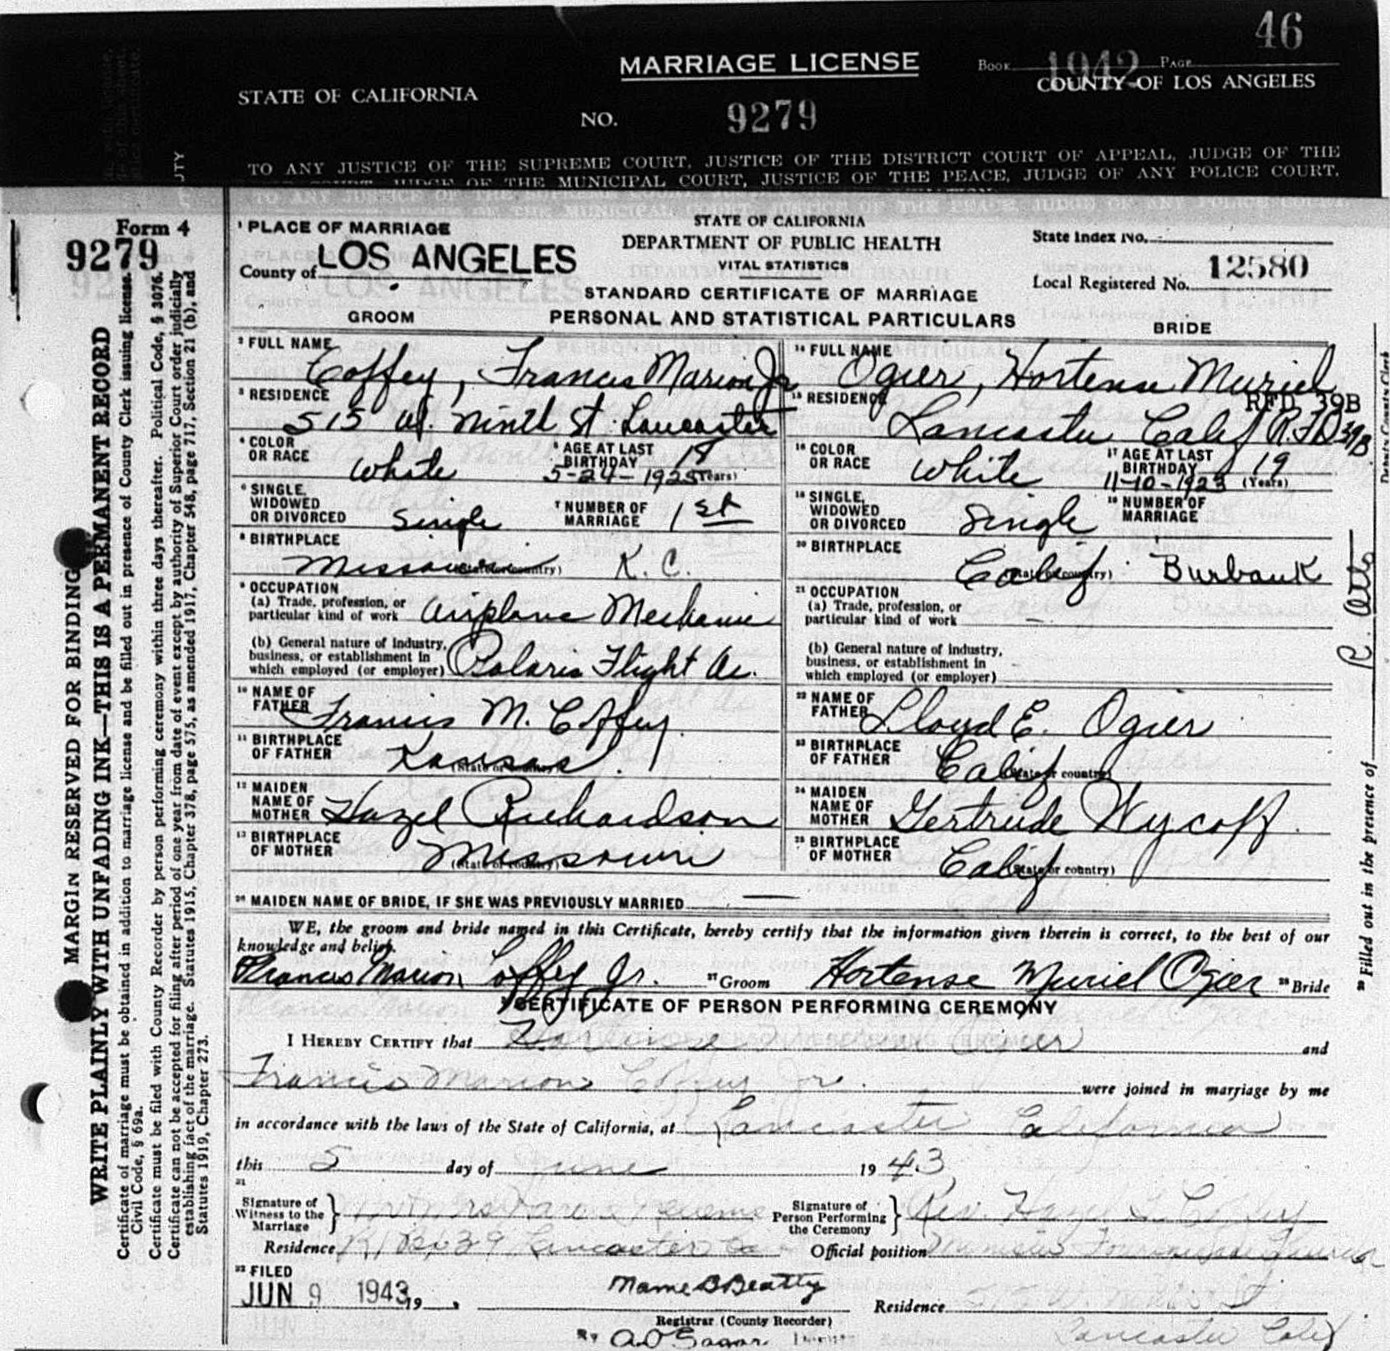 46
MARRIAGE LICENSE
BOOK 1942 PAGE
STATE OF CALIFORNIA
COUNTY OF LOS ANGELES
NO. 9279
TO ANY JUSTICE OF THE SUPREME COURT, JUSTICE OF THE DISTRICT COURT OF APPEAL, JUDGE OF THE
COURT, JUDGE OF THE MUNICIPAL COURT, JUSTICE OF THE PEACE, JUDGE OF ANY POLICE COURT,
Form 4
9279
MARGIN RESERVED FOR BINDING
WRITE PLAINLY WITH UNFADING INK—THIS IS A PERMANENT RECORD
Certificate of marriage must be obtained in addition to marriage license and be filled out in presence of County Clerk issuing license.
Civil Code, § 69a.
Certificate must be filed with County Recorder by person performing ceremony within three days thereafter. Political Code, § 3076.
Certificate can not be accepted for filing after period of one year from date of event except by authority of Superior Court order judicially
establishing fact of the marriage. Statutes 1915, Chapter 378, page 575, as amended 1917, Chapter 548, page 717, Section 21 (b), and
Statutes 1919, Chapter 273.
1 PLACE OF MARRIAGE
County of LOS ANGELES
STATE OF CALIFORNIA
DEPARTMENT OF PUBLIC HEALTH
VITAL STATISTICS
STANDARD CERTIFICATE OF MARRIAGE
State Index No.
Local Registered No. 12580
GROOM
PERSONAL AND STATISTICAL PARTICULARS
BRIDE
2 FULL NAME Coffey, Francis Marion Jr
14 FULL NAME Ogier, Hortense Muriel
3 RESIDENCE 515 W. Ninth St. Lancaster
15 RESIDENCE Lancaster Calif R.F.D 39B
RFD 39B
4 COLOR OR RACE White
5 AGE AT LAST BIRTHDAY 18 (Years)
5-24-1925
16 COLOR OR RACE White
17 AGE AT LAST BIRTHDAY 19 (Years)
11-10-1923
6 SINGLE, WIDOWED OR DIVORCED Single
7 NUMBER OF MARRIAGE 1st
18 SINGLE, WIDOWED OR DIVORCED Single
19 NUMBER OF MARRIAGE
8 BIRTHPLACE Missouri K. C.
(State or country)
20 BIRTHPLACE Calif Burbank
(State or country)
9 OCCUPATION
(a) Trade, profession, or particular kind of work Airplane Mechanic
21 OCCUPATION
(a) Trade, profession, or particular kind of work —
(b) General nature of industry, business, or establishment in which employed (or employer) Polaris Flight Ac.
(b) General nature of industry, business, or establishment in which employed (or employer)
10 NAME OF FATHER Francis M. Coffey
22 NAME OF FATHER Lloyd E. Ogier
11 BIRTHPLACE OF FATHER Kansas
(State or country)
23 BIRTHPLACE OF FATHER Calif
(State or country)
12 MAIDEN NAME OF MOTHER Hazel Richardson
24 MAIDEN NAME OF MOTHER Gertrude Wycoff
13 BIRTHPLACE OF MOTHER Missouri
(State or country)
25 BIRTHPLACE OF MOTHER Calif
(State or country)
26 MAIDEN NAME OF BRIDE, IF SHE WAS PREVIOUSLY MARRIED —
WE, the groom and bride named in this Certificate, hereby certify that the information given therein is correct, to the best of our
knowledge and belief.
Francis Marion Coffey Jr. 27 Groom Hortense Muriel Ogier 28 Bride
CERTIFICATE OF PERSON PERFORMING CEREMONY
I HEREBY CERTIFY that Hortense Ogier and
Francis Marion Coffey Jr. were joined in marriage by me
in accordance with the laws of the State of California, at Lancaster California
this 5 day of June 1943
31
Signature of Witness to the Marriage
Signature of Person Performing the Ceremony Rev. Hazel
Residence R1 Box 39 Lancaster Ca
Official position
32 FILED
JUN 9 1943 19 .
Mame B Beatty
Registrar (County Recorder)
Residence St
Lancaster Calif
By
Filled out in the presence of R. Otto
Deputy County Clerk